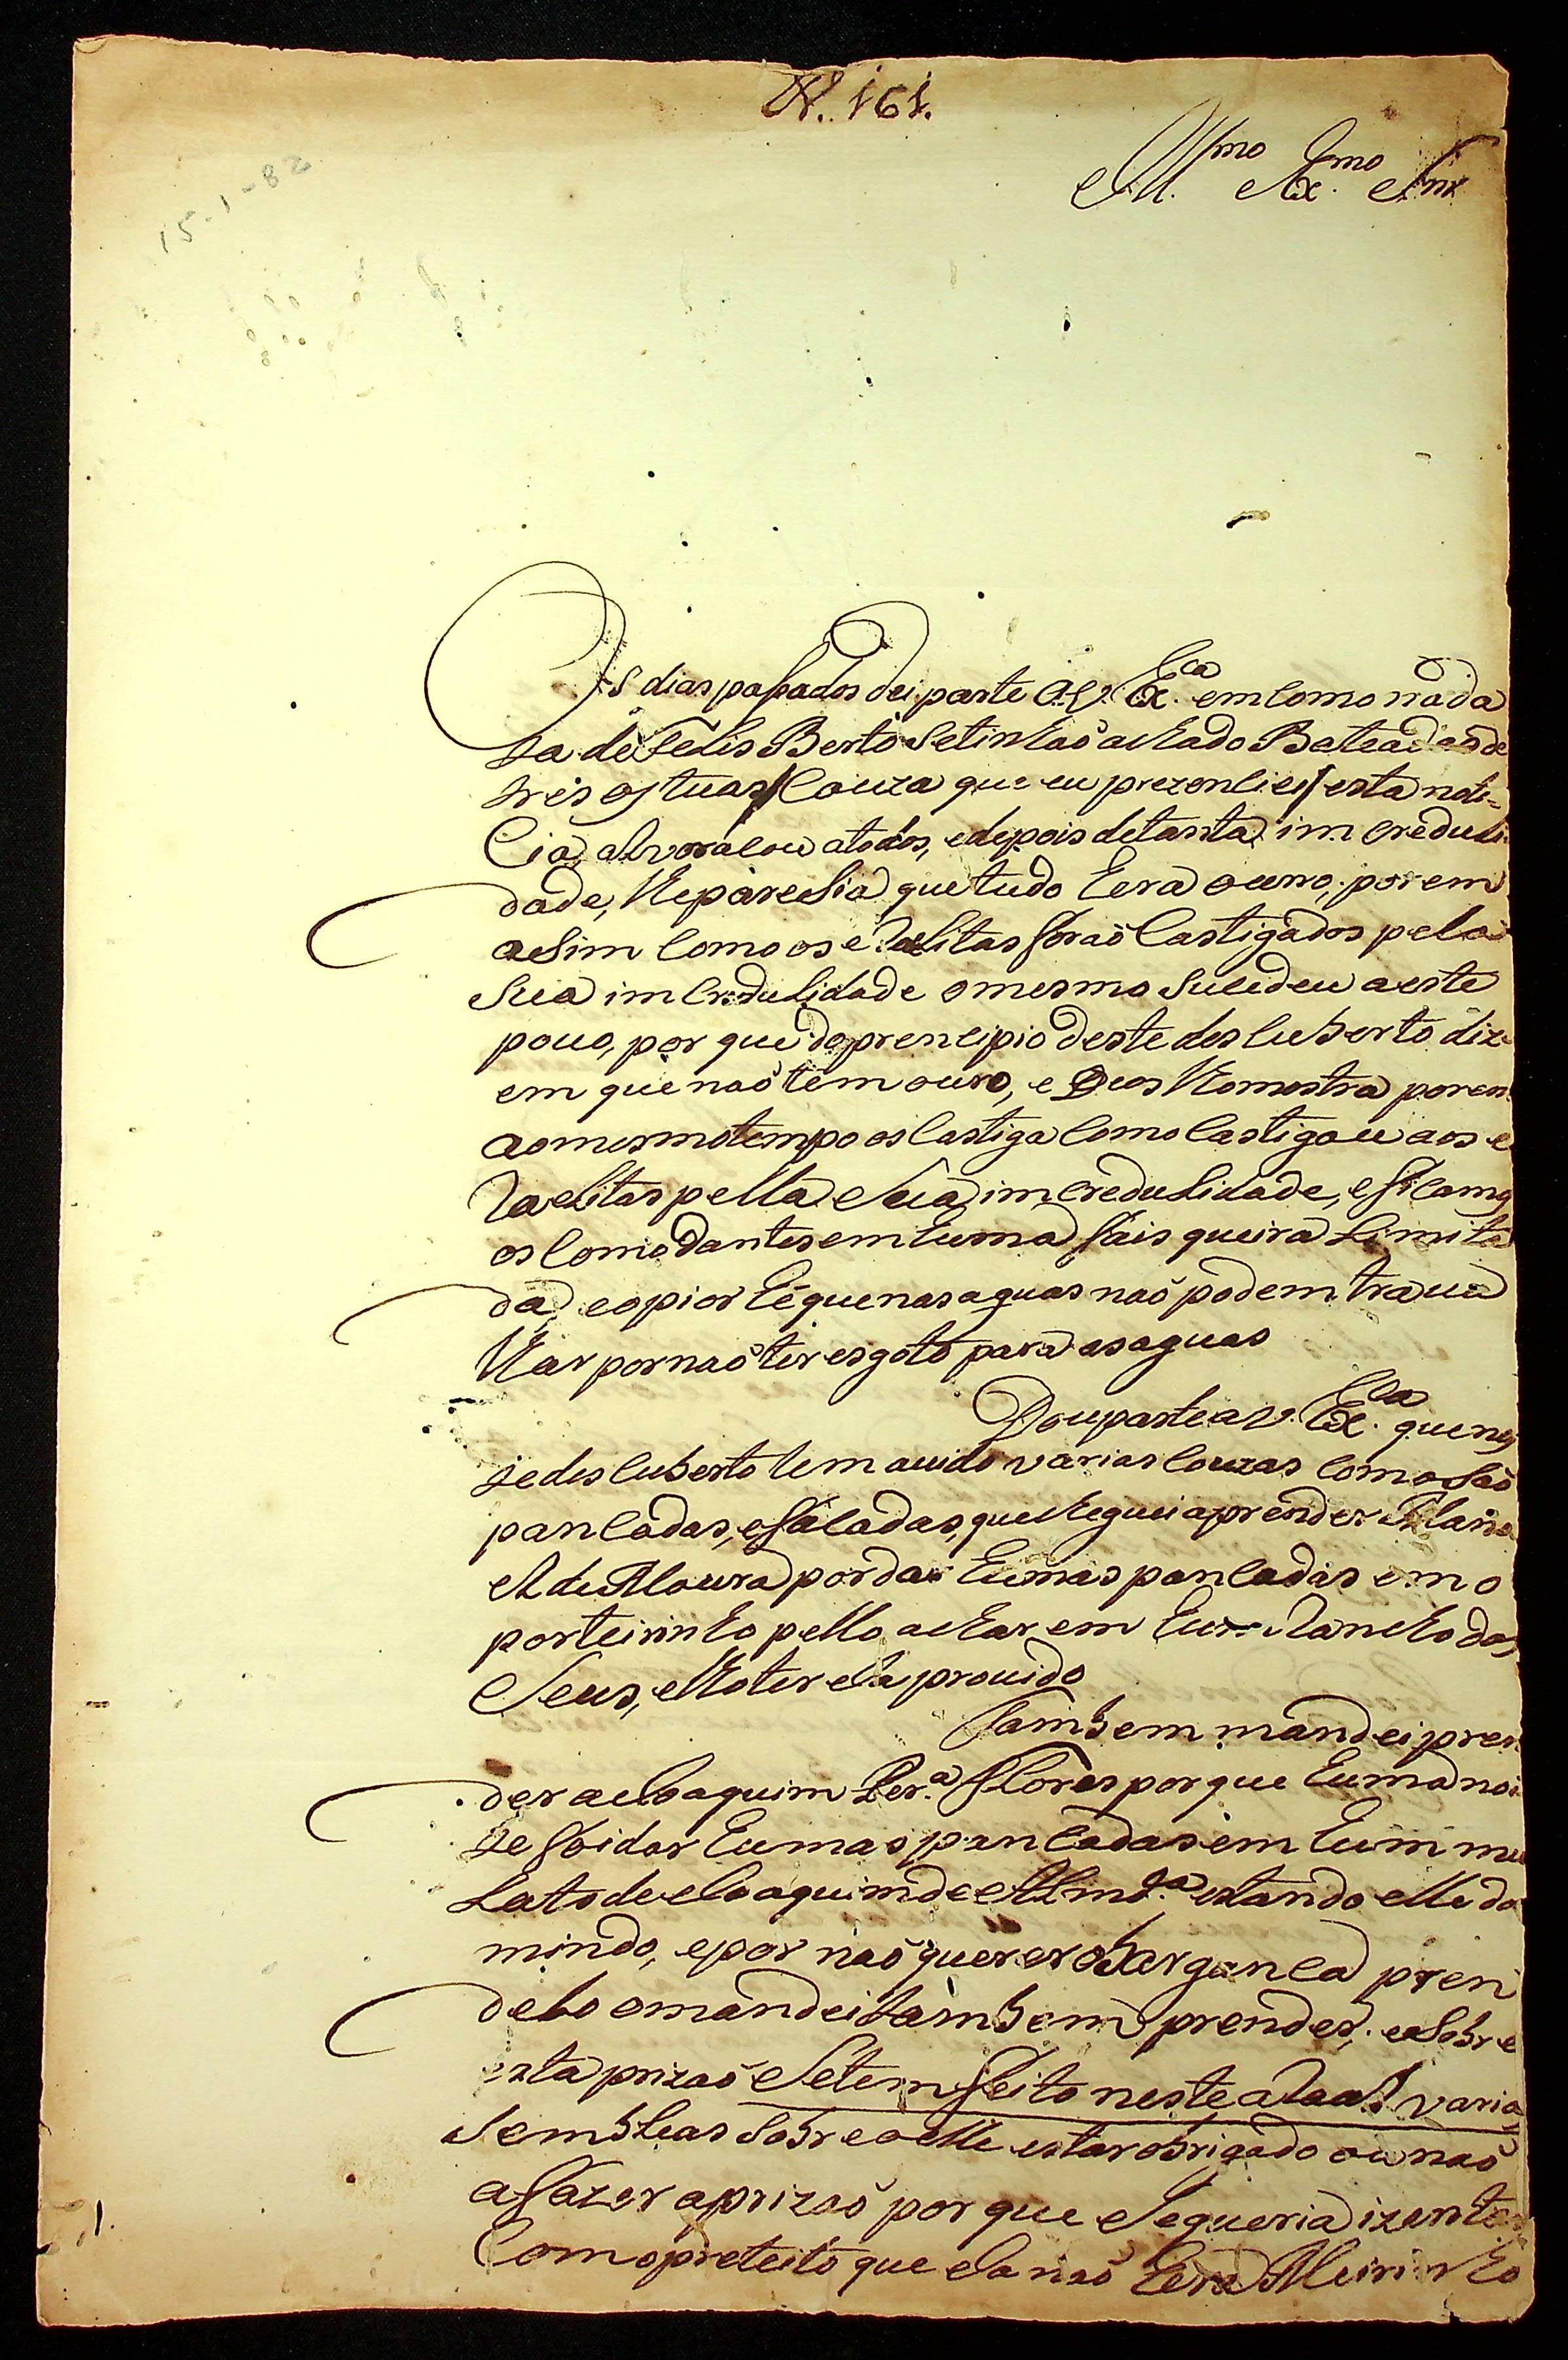 N. 161.
15-1-82
Ill.mo Ex.mo Snr
Os dias pasados dei parte a V. Ex.ca em como na da
ta de Felis Berto se tinhaõ achado Bateadas de
tres oytuas Couza que eu prezenciei esta noti=
Cia alvoracou atodos, e depois de tanta imcreduli
dade, lhe paresia que tudo hera ouro, porem
asim Como os e Raelitas foraõ Castigados pela
Sua imCredulidade o mesmo Sucedeu a este
pouo, por que do prencipio deste descuberto diz
em que naõ tem ouro, e Deos lho mostra porem
ao mesmo tempo os Castiga Como Castigou aos e
Raelitas pella Sua imcredulidade, e ficamos
os Como dantes em huma faisqueira Limita
da, e o pior hé que nas aguas naõ podem traua
lhar por naõ ter esgoto para as aguas
Dou parte a V. Ex.ca que nes
te descuberto tem auido varias Couzas Como saõ
pancadas, e facadas, que cheguei a prender
de Moura por dar humas pancadas em o
porteirinho pello achar em hum Rancho dos
Seus, e lho ter ja prouido
Tambem mandei pren
der a Joaquim Per.a Flores porque huma noi
te foi dar humas pancadas em hum mu
Lato de Joaquim de Almd.a estando elle dor
mindo, e por naõ querer o Bargança pren
delo o mandei tambem prender, e Sobre
esta prizaõ Se tem feito neste aRaal varias
semBleas Sobre o elle estar obrigado ou naõ
a fazer a prizaõ por que Se queria izentar
Com o preteisto que Ja naõ hera Meirinho
1.